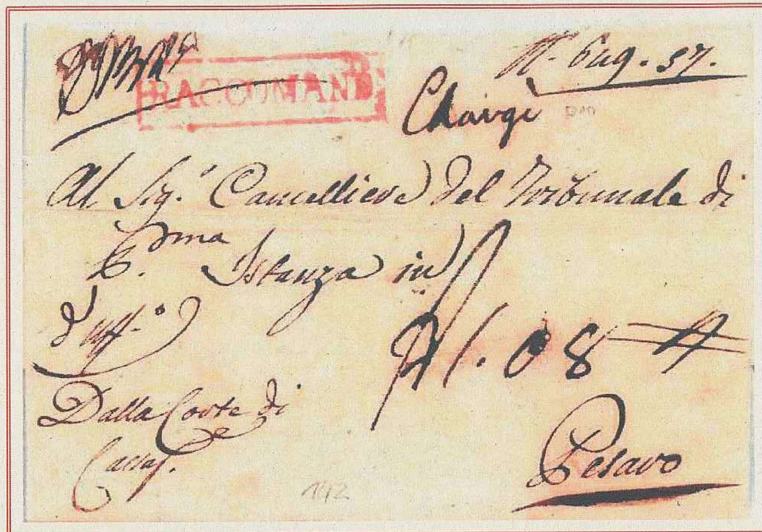 RACCOMAND.
N. Gug. 57.
Chargé
Al Sig.r Cancelliere del Tribunale di
P.ma Istanza in
d'uff.o
1.08
Dalla Corte di
Cassaz.
Pesaro
142